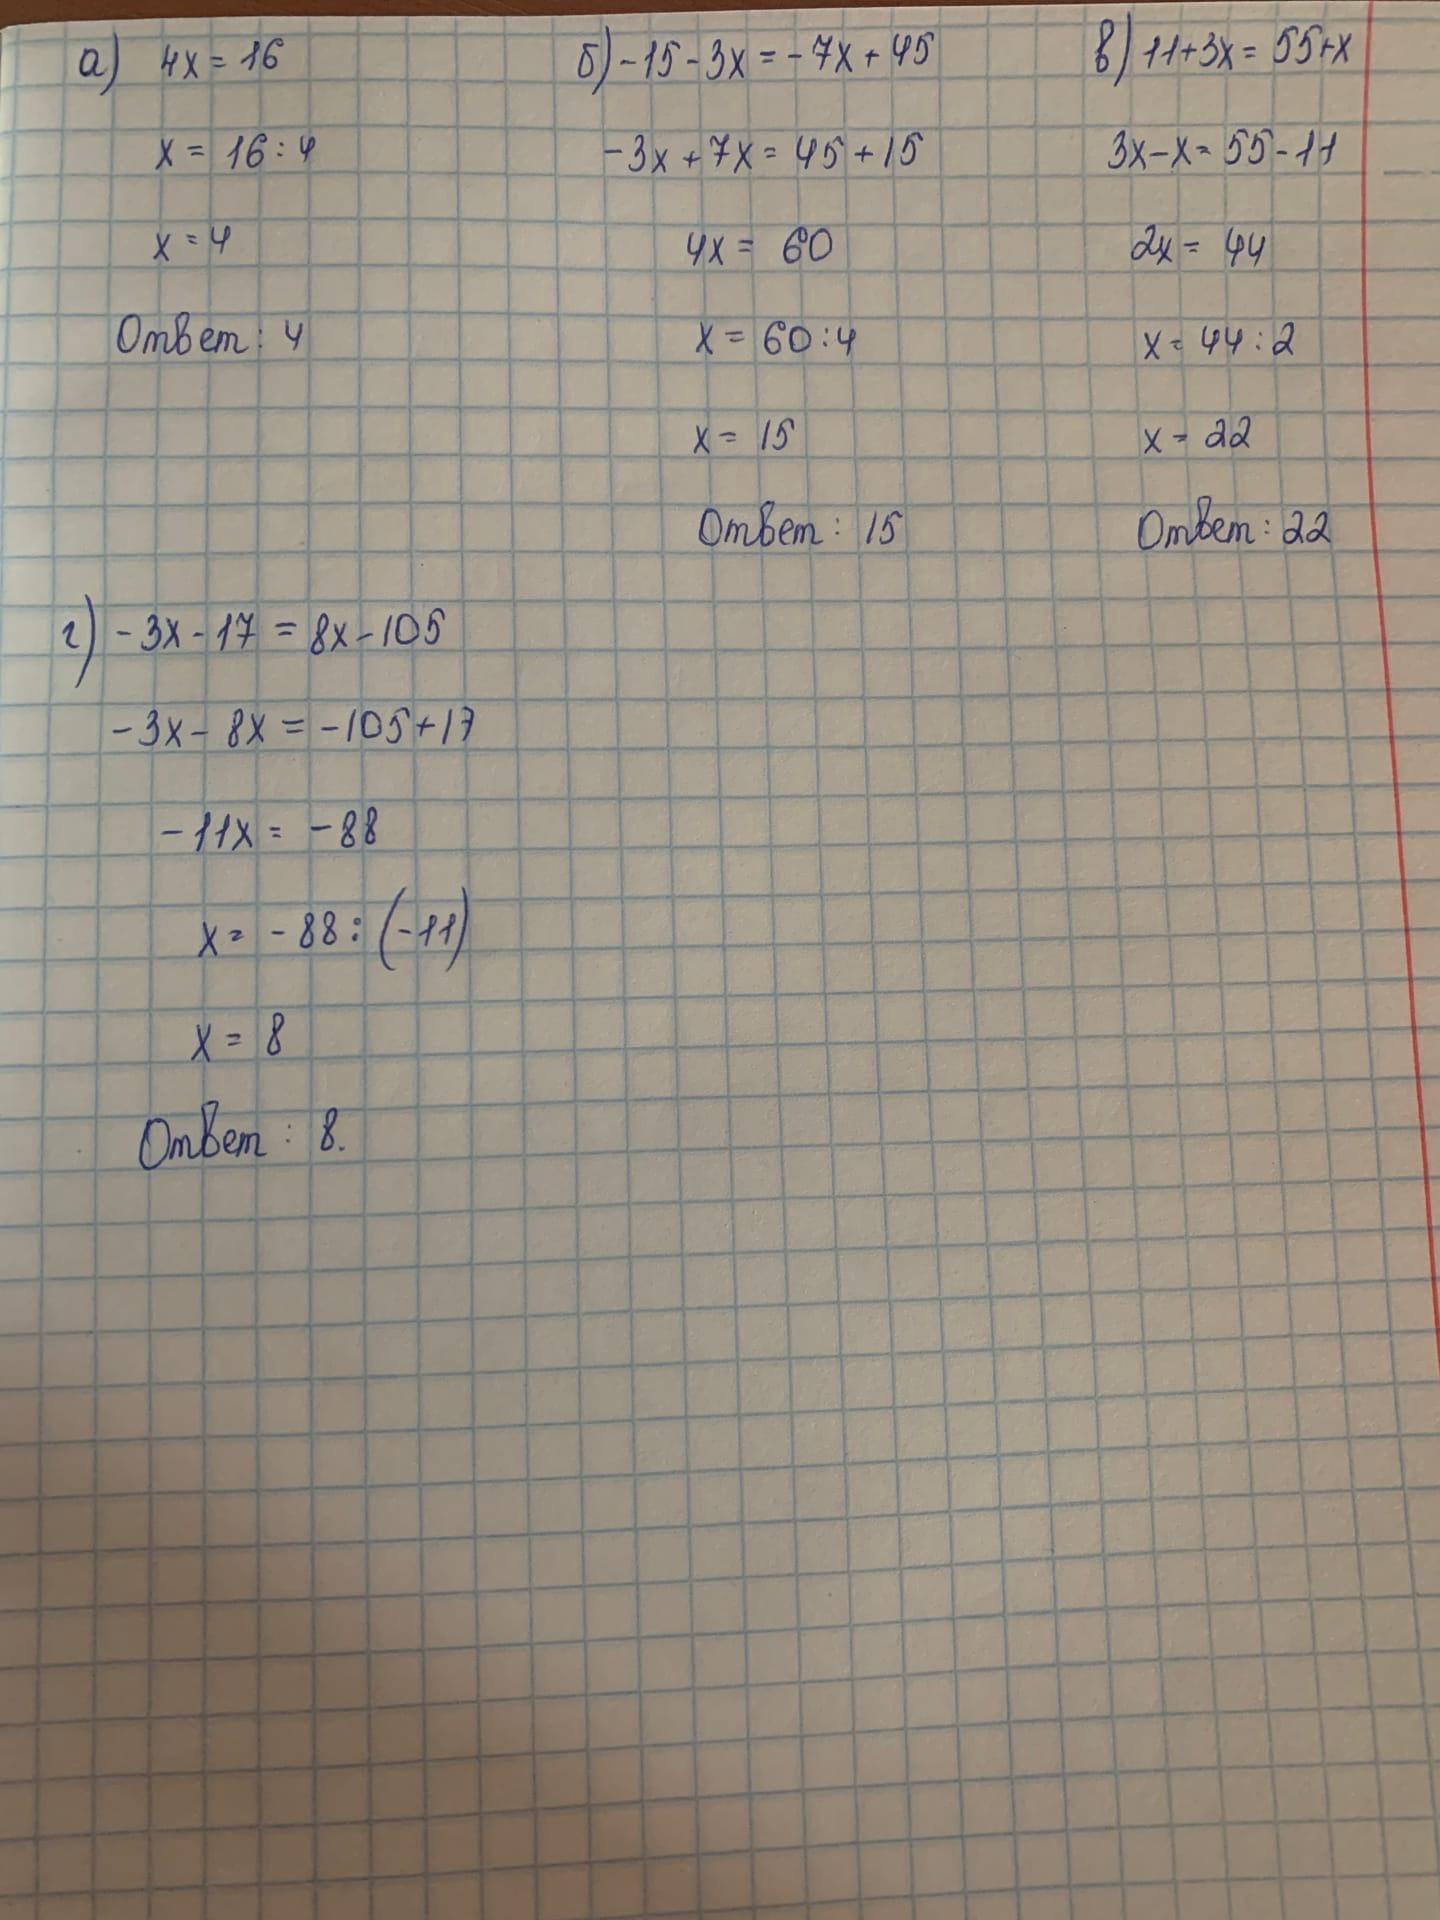 а) 4x = 16
x = 16 : 4
x = 4
Ответ: 4
б) -15 - 3x = -7x + 45
-3x + 7x = 45 + 15
4x = 60
x = 60 : 4
x = 15
Ответ: 15
в) 11 + 3x = 55 + x
3x - x = 55 - 11
2x = 44
x = 44 : 2
x = 22
Ответ: 22
г) -3x - 17 = 8x - 105
-3x - 8x = -105 + 17
-11x = -88
x = -88 : (-11)
x = 8
Ответ: 8.